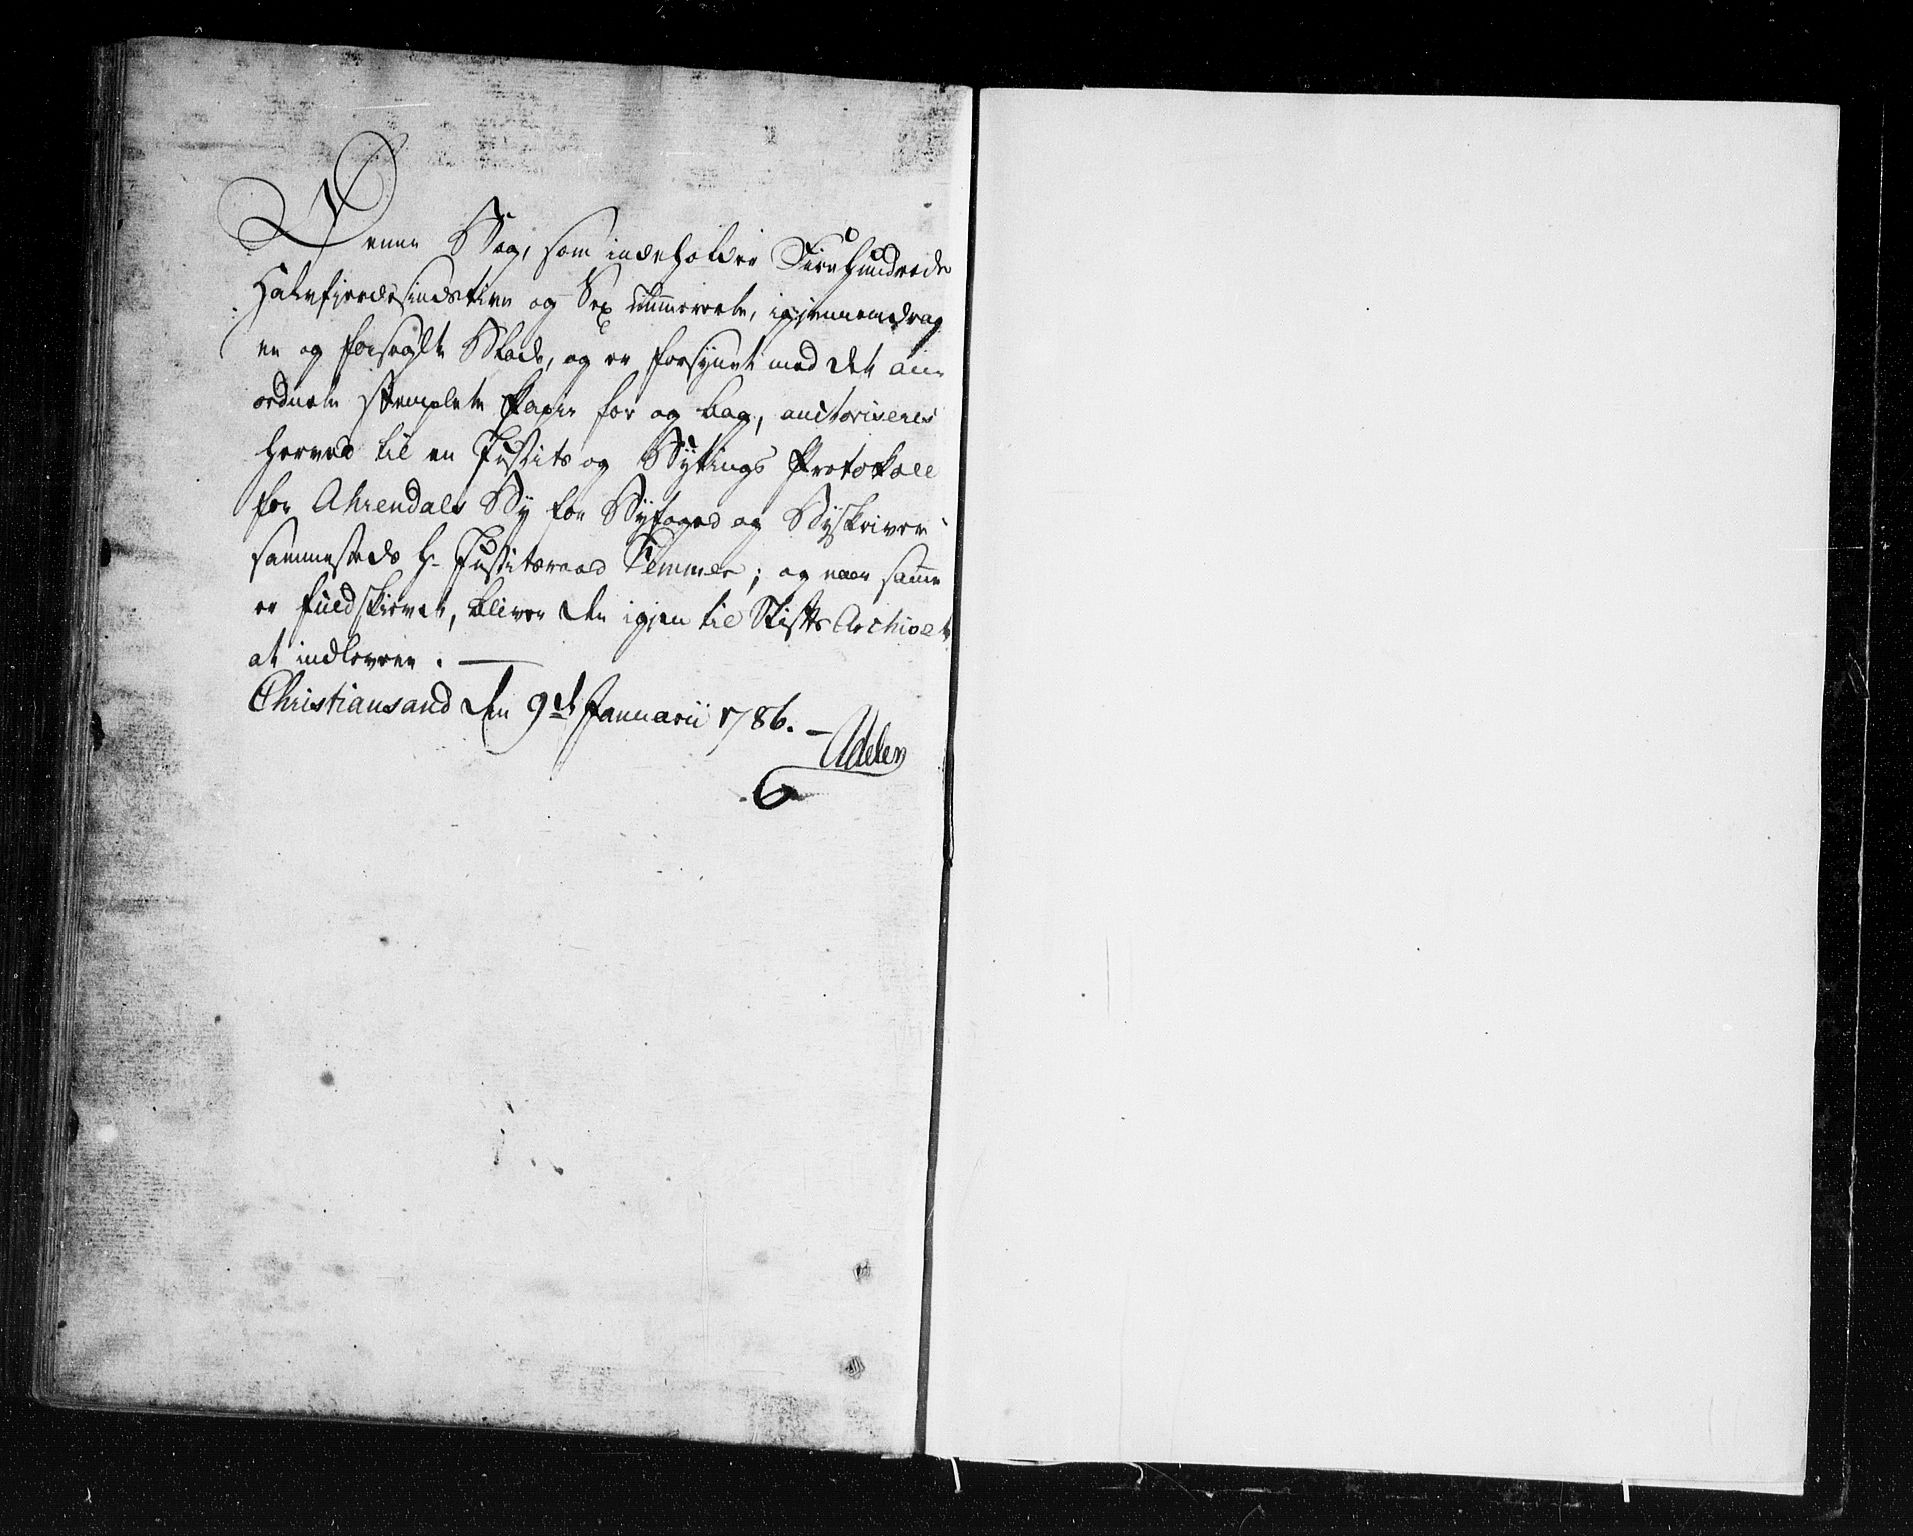 Denne Bog, som indeholder Fire Hundrede
Halvfierdesindstive og Sex Numererte, igjennemdrag
ne og forseglte Blade, og er forsynet med det an¬
ordnete stemplete Papir for og bag, auctoriseres
herved til en Justits og Bytings Protokoll
for Ahrendals By for Byfoged og Byskriver
sammesteds Hr Justitsraad Femmer; og naar samme
er fuldskreven, bliver den igjen til Stifts Archivet
at indlevere. —
Christiansand den 9de Januarii 1786. —
Adeler